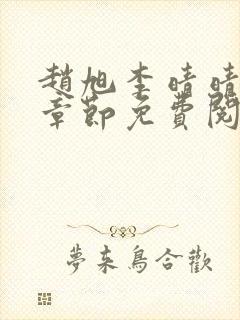 趙旭李晴晴
章節免費閱
夢来鳥合歡